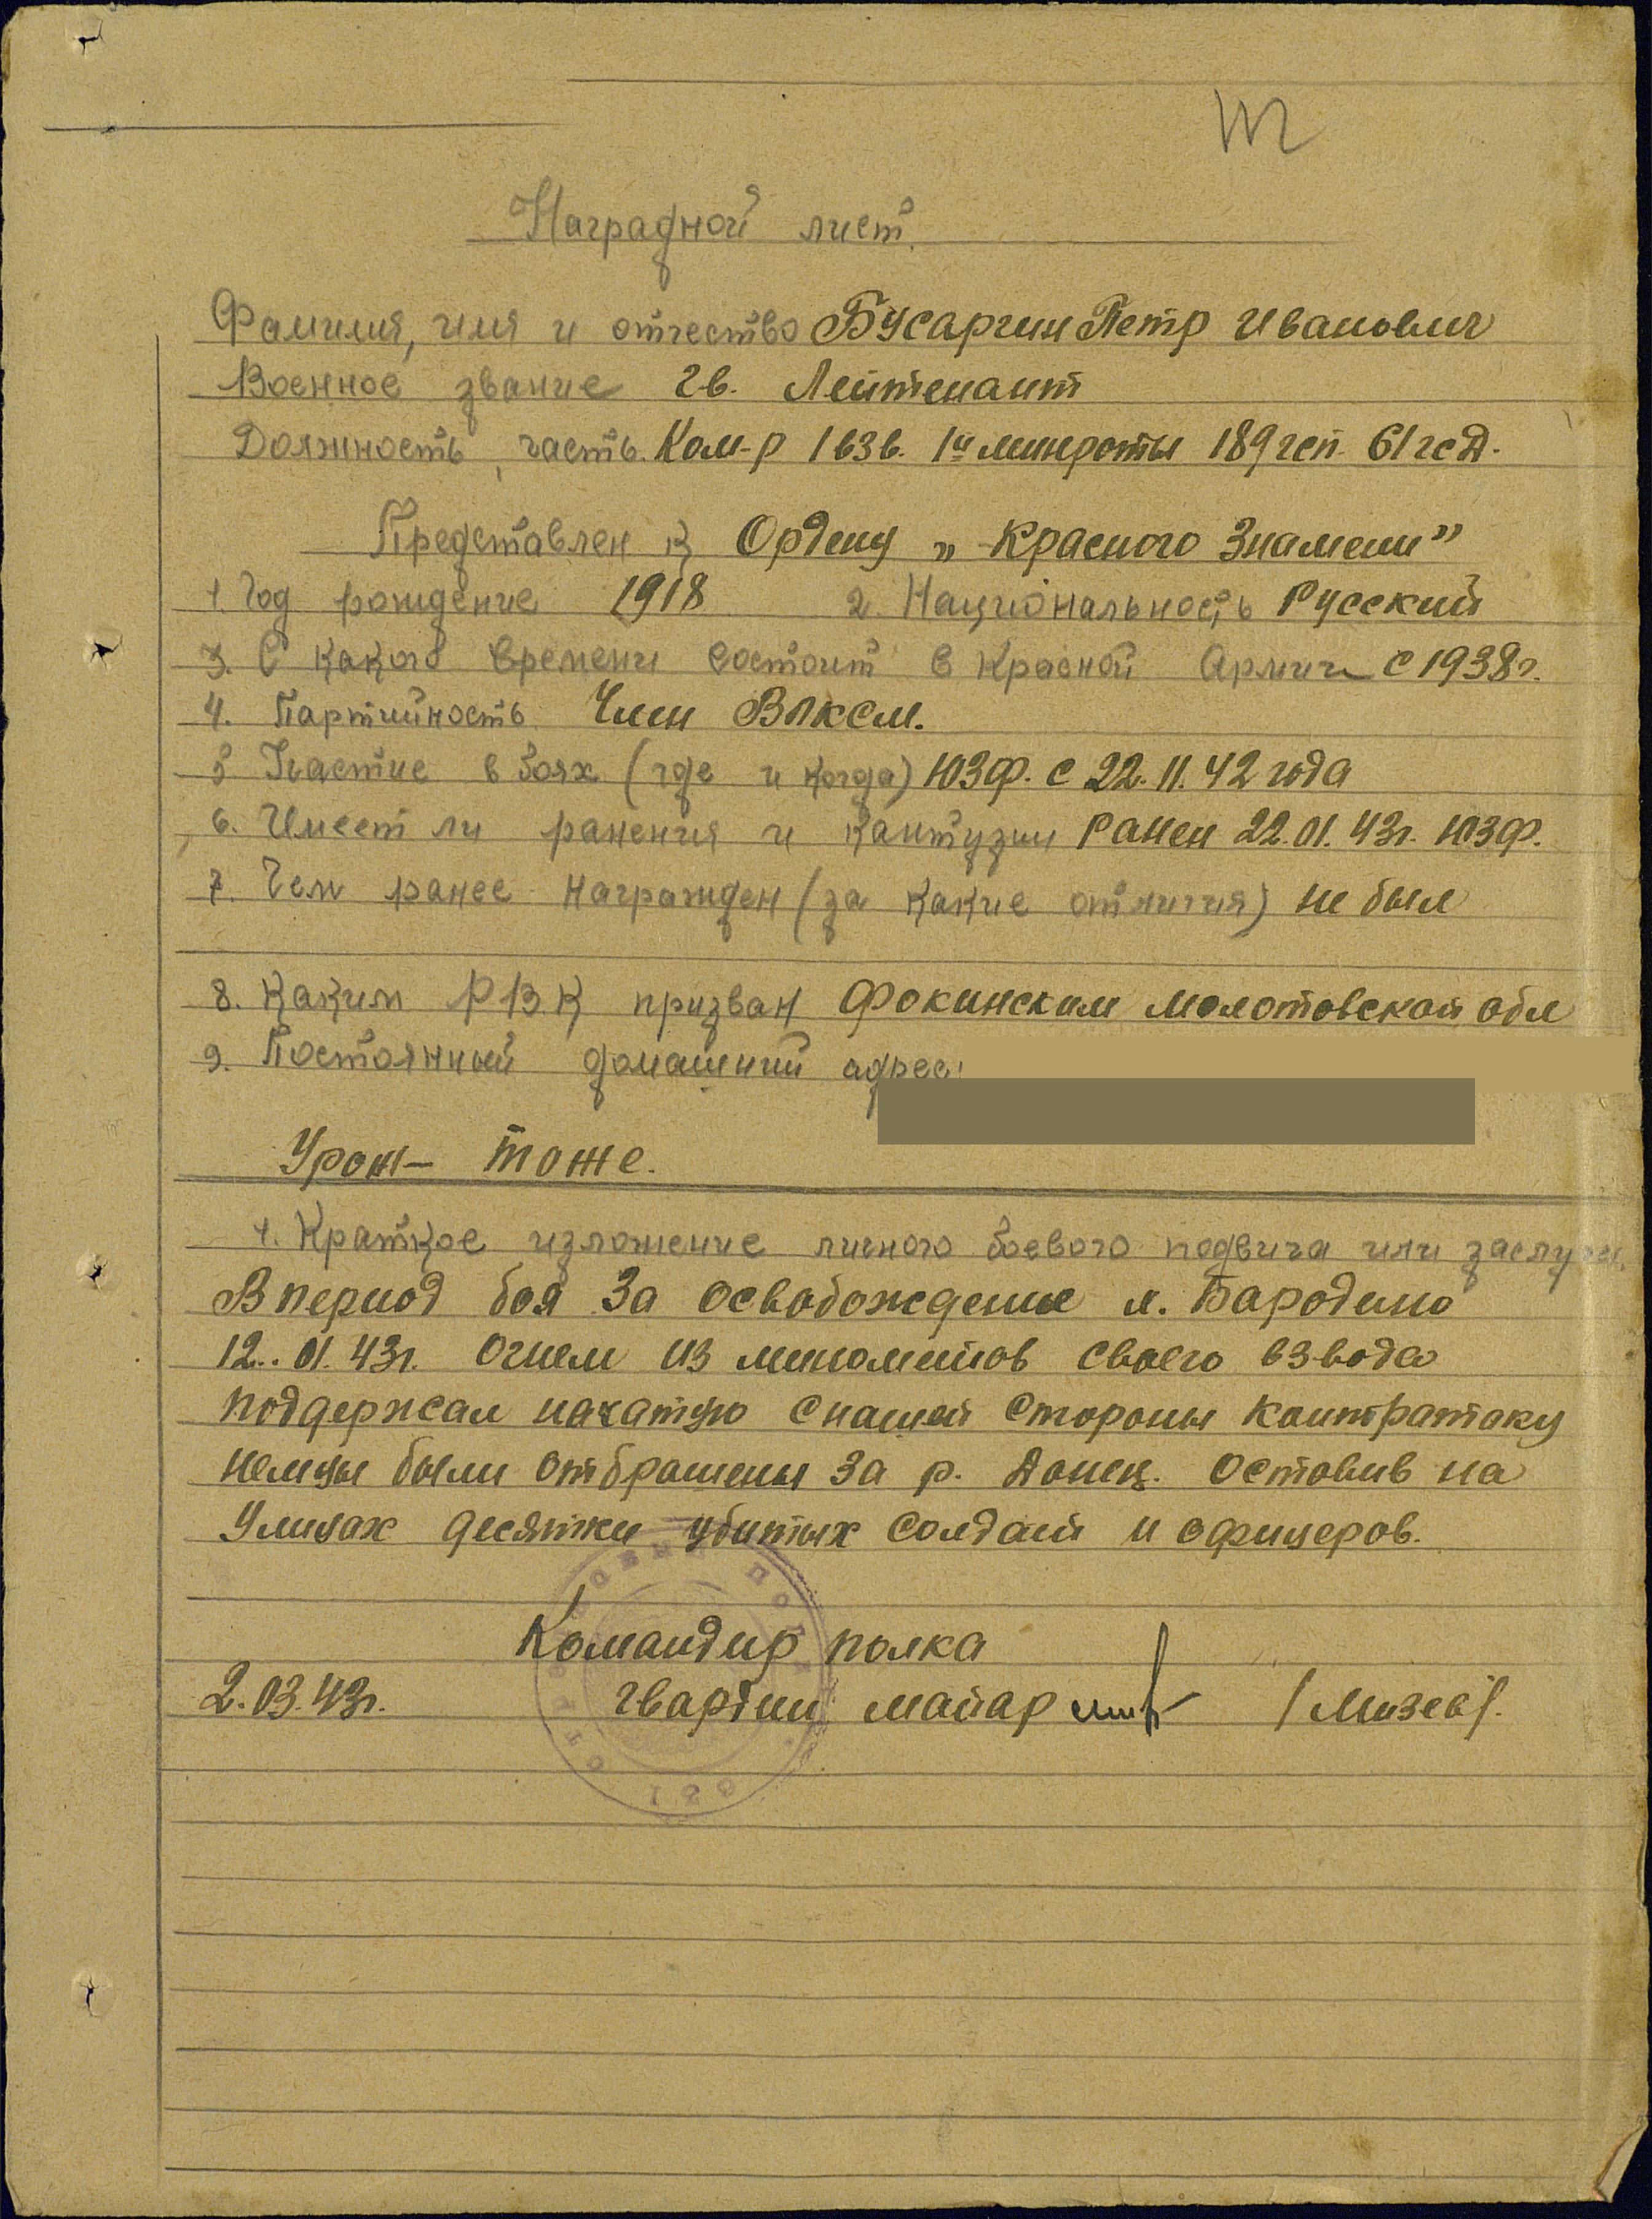 Наградной лист.
Фамилия, имя и отчество Бусаргин Петр Иванович
Военное звание гв. Лейтенант
Должность, часть. Ком-р 1 взв. 1й минроты 189 гсп. 61 гсд.
Представлен к Ордену „Красного Знамени"
1. Год рождение 1918 2. Национальность Русский
3. С какого времени состоит в Красной Армии с 1938г.
4. Партийность Член ВЛКСМ.
5 Участие в боях (где и когда) ЮЗФ. с 22.11.42 года
6. Имеет ли ранения и кантузии Ранен 22.01.43г. ЮЗФ.
7. Чем ранее награжден (за какие отличия) не был
8. Каким РВК призван Фокинским Молотовской обл
9. Постоянный домашний адрес:
Урож- тоже.
1. Краткое изложение личного боевого подвига или заслуги.
В период боя за освобождение п. Бародино
12..01.43г. Огнем из минометов своего взвода
поддержал начатую с нашей стороны контратаку
немцы были отбрашены за р. Донец. Оставив на
Улицах десятки убитых солдат и офицеров.
Командир полка
2.03.43г. гвардии майар /Мизев/.